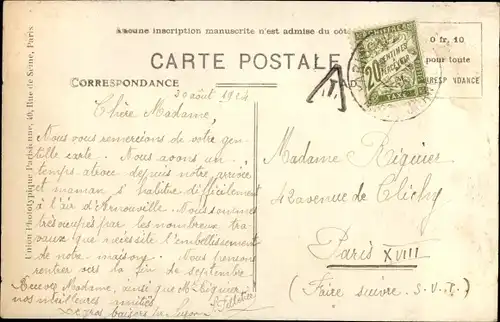 Aucune inscription manuscrite n'est admise du côté
CARTE POSTALE
CORRESPONDANCE
0 fr. 10
pour toute
CORRESPONDANCE
Union Phototypique Parisienne, 40, Rue de Seine, Paris
A CHIFFRE
20
CENTIMES
A PERCEVOIR
TAXE
T.
30 août 1924
Chère Madame,
Nous vous remercions de votre gen-
tille carte. Nous avons un
temps atroce depuis notre arrivée
et maman s'habitue difficilement
à l'air d'Arnouville. Nous sommes
très occupés par les nombreux tra-
vaux que nécessite l'embellissement
de notre maison. Nous pensons
rentrer vers la fin de septembre.
Recevez Madame, ainsi que Mr Riquier
nos meilleures amitiés.
S. Pelletier
Madame Riquier
42 avenue de Clichy
Paris XVIII
(Faire suivre. S.V.P.)